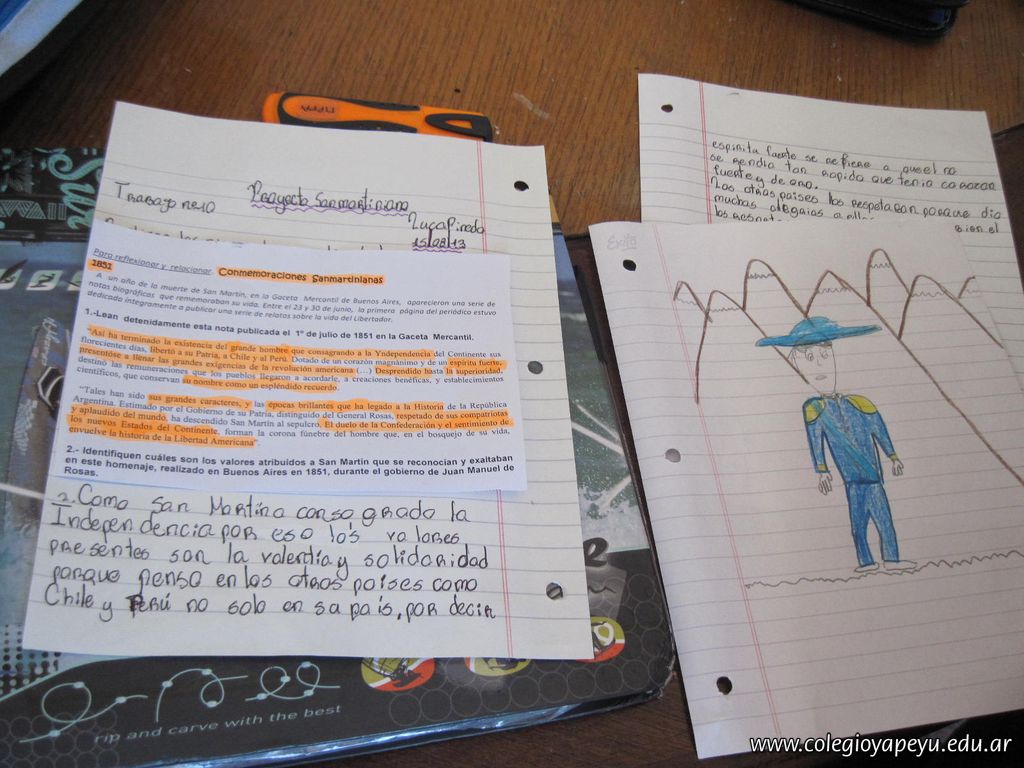 Trabajo nº10
Proyecto Sanmartiniano
Luca Pinedo
15/08/13
Para reflexionar y relacionar. Conmemoraciones Sanmartinianas
1851
A un año de la muerte de San Martín, en la Gaceta Mercantil de Buenos Aires, aparecieron una serie de
notas biográficas que rememoraban su vida. Entre el 23 y 30 de junio, la primera página del periódico estuvo
dedicada íntegramente a publicar una serie de relatos sobre la vida del Libertador.
1.-Lean detenidamente esta nota publicada el 1º de julio de 1851 en la Gaceta Mercantil.
"Así ha terminado la existencia del grande hombre que consagrando a la Yndependencia del Continente sus
florecientes días, libertó a su Patria, a Chile y al Perú. Dotado de un corazón magnánimo y de un espíritu fuerte,
presentóse a llenar las grandes exigencias de la revolución americana (...) Desprendido hasta la superioridad,
destinó las remuneraciones que los pueblos llegaron a acordarle, a creaciones benéficas, y establecimientos
científicos, que conservan su nombre como un espléndido recuerdo.
"Tales han sido sus grandes caracteres, y las épocas brillantes que ha legado a la Historia de la República
Argentina. Estimado por el Gobierno de su Patria, distinguido del General Rosas, respetado de sus compatriotas
y aplaudido del mundo, ha descendido San Martín al sepulcro. El duelo de la Confederación y el sentimiento de
los nuevos Estados del Continente, forman la corona fúnebre del hombre que, en el bosquejo de su vida,
envuelve la historia de la Libertad Americana".
2.- Identifiquen cuáles son los valores atribuidos a San Martín que se reconocían y exaltaban
en este homenaje, realizado en Buenos Aires en 1851, durante el gobierno de Juan Manuel de
Rosas.
2. Como San Martina consagrado la
Independencia por eso los valores
presentes son la valentia y solidaridad
porque penso en los otros paises como
Chile y Perú no solo en su país, por decir
espiritu fuerte se refiere a que el no
se rendia tan rapido que tenia corazon
fuerte y de oro.
Los otros paises los respetaban porque dio
muchas
bien el
Exito
rip and carve with the best
www.colegioyapeyu.edu.ar